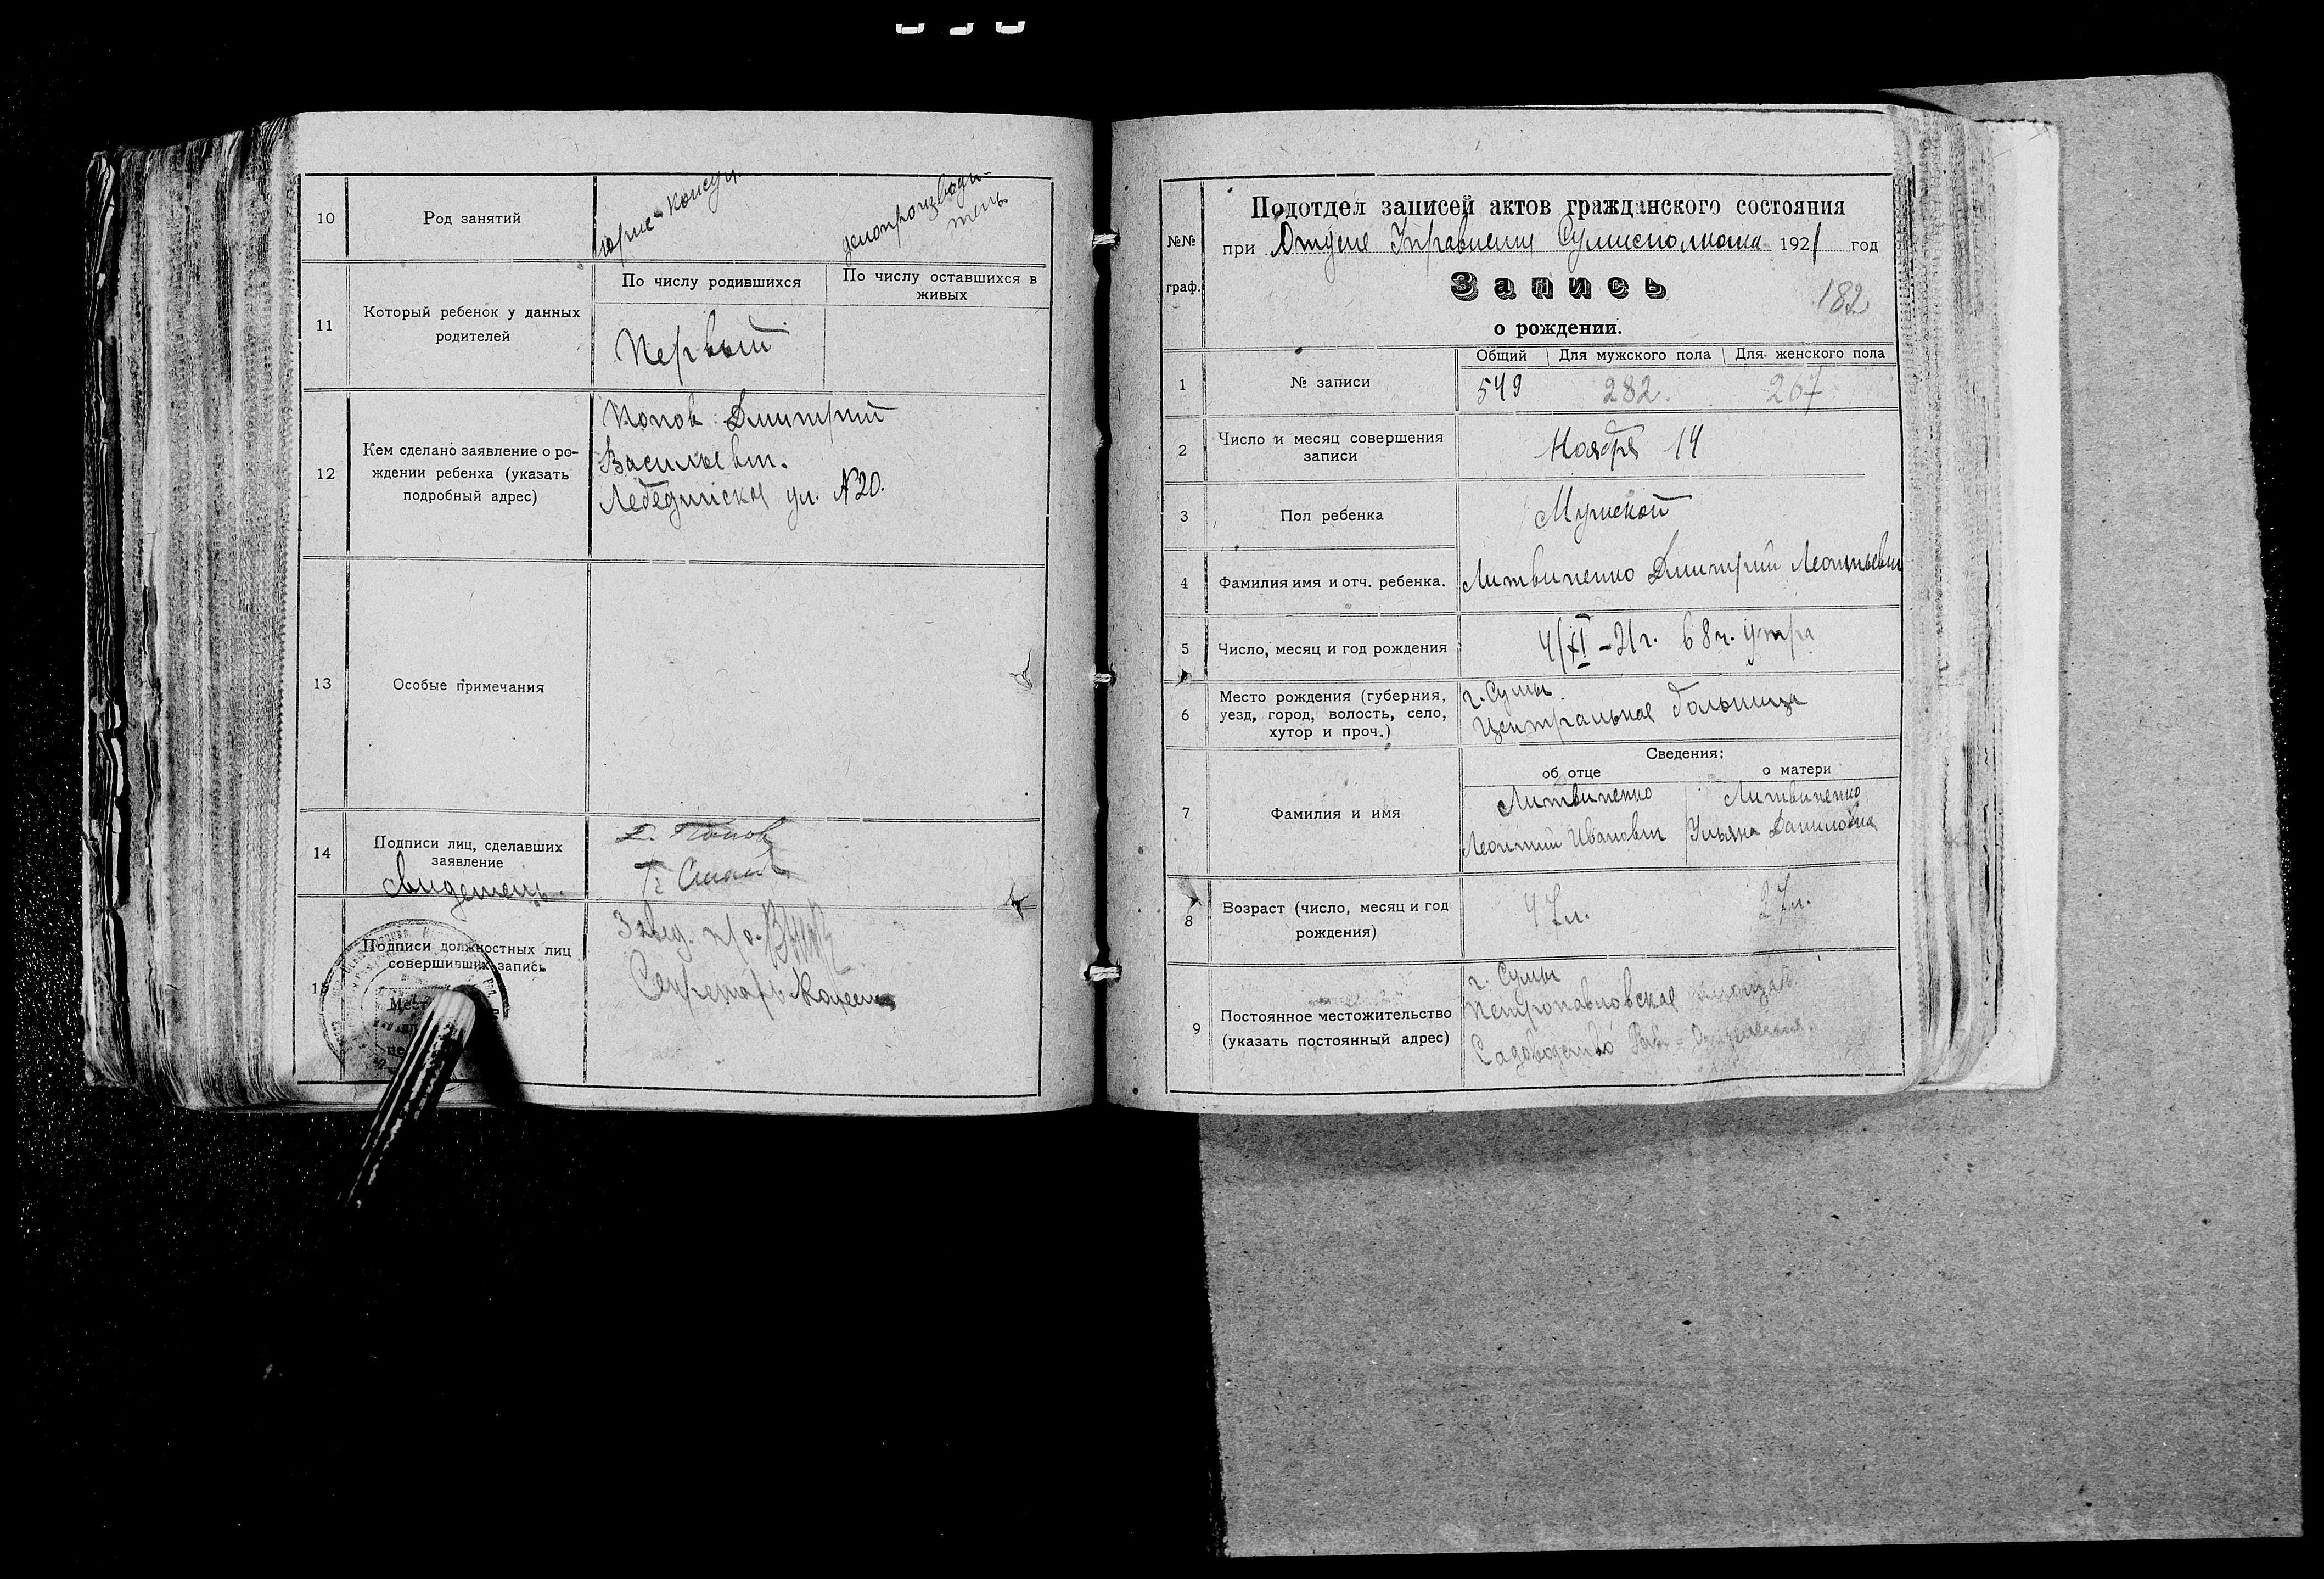 10
Род занятий
юрис-консул.
делопроизводи-
тель
11
Который ребенок у данных
родителей
По числу родившихся
По числу оставшихся в
живых
Первый
12
Кем сделано заявление о ро-
ждении ребенка (указать
подробный адрес)
Попов Дмитрий
Васильевич.
Лебединская ул. №20.
13
Особые примечания
14
Подписи лиц, сделавших
заявление
свидетель.
Д. Попов
15
Подписи должностных лиц
совершивших запись
Завед. п/о.
Секретарь
№№
граф.
Подотдел записей актов гражданского состояния
при Отделе Управления Сумисполкома 1921 год
Запись
182
о рождении.
1
№ записи
Общий Для мужского пола Для женского пола
549 282. 267
2
Число и месяц совершения
записи
Ноября 14
3
Пол ребенка
Мужской
4
Фамилия имя и отч. ребенка.
Литвиненко Дмитрий Леонтьевич
5
Число, месяц и год рождения
4/XI-21г. в 8 ч. утра
6
Место рождения (губерния,
уезд, город, волость, село,
хутор и проч.)
г. Сумы.
Центральная больница
Сведения:
об отце о матери
7
Фамилия и имя
Литвиненко
Леонтий Иванович
Литвиненко
Ульяна Даниловна
8
Возраст (число, месяц и год
рождения)
47л. 27л.
9
Постоянное местожительство
(указать постоянный адрес)
г. Сумы
Петропавловская площадь
Садоводство